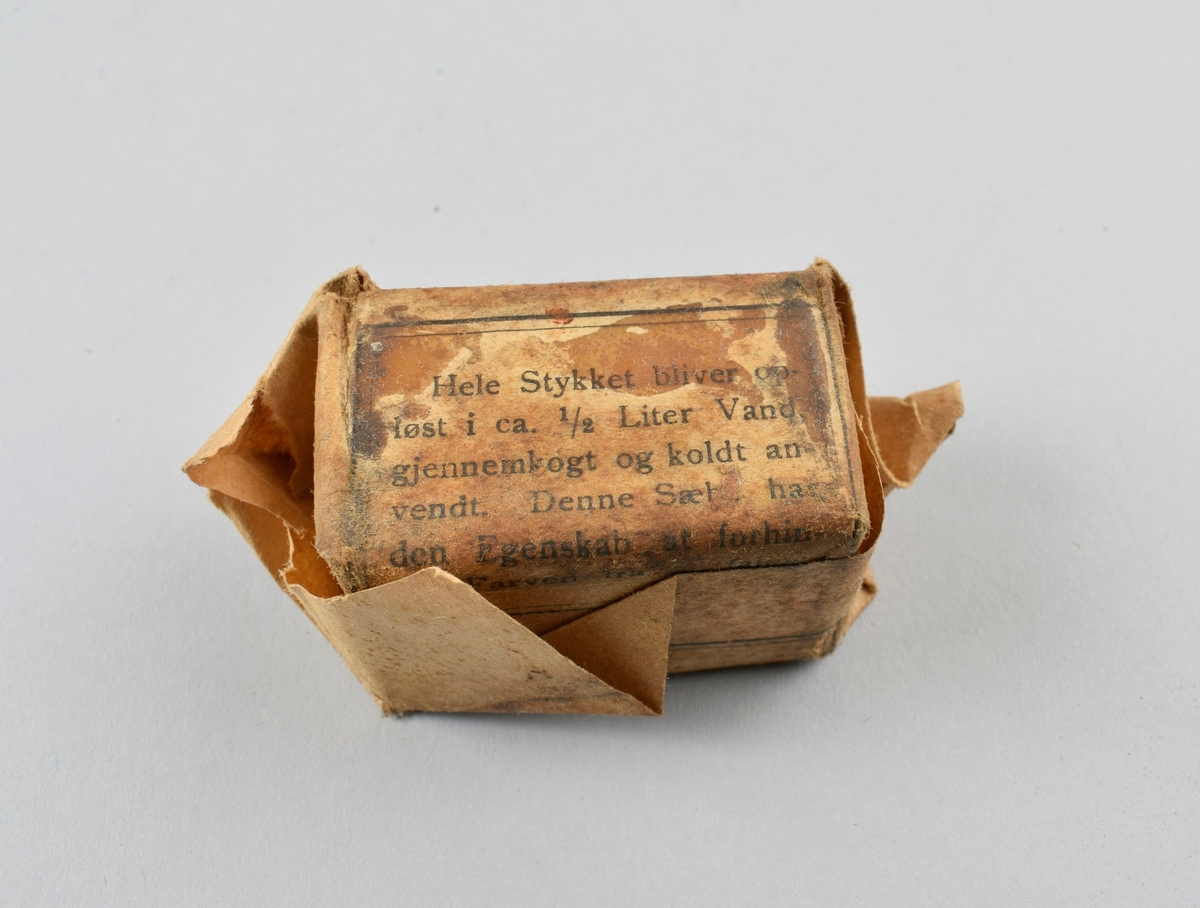 Hele Stykket bliver op-
løst i ca. ½ Liter Vand,
gjennemkogt og koldt an-
vendt. Denne Sæbe har
den Egenskab at forhin-
Farven